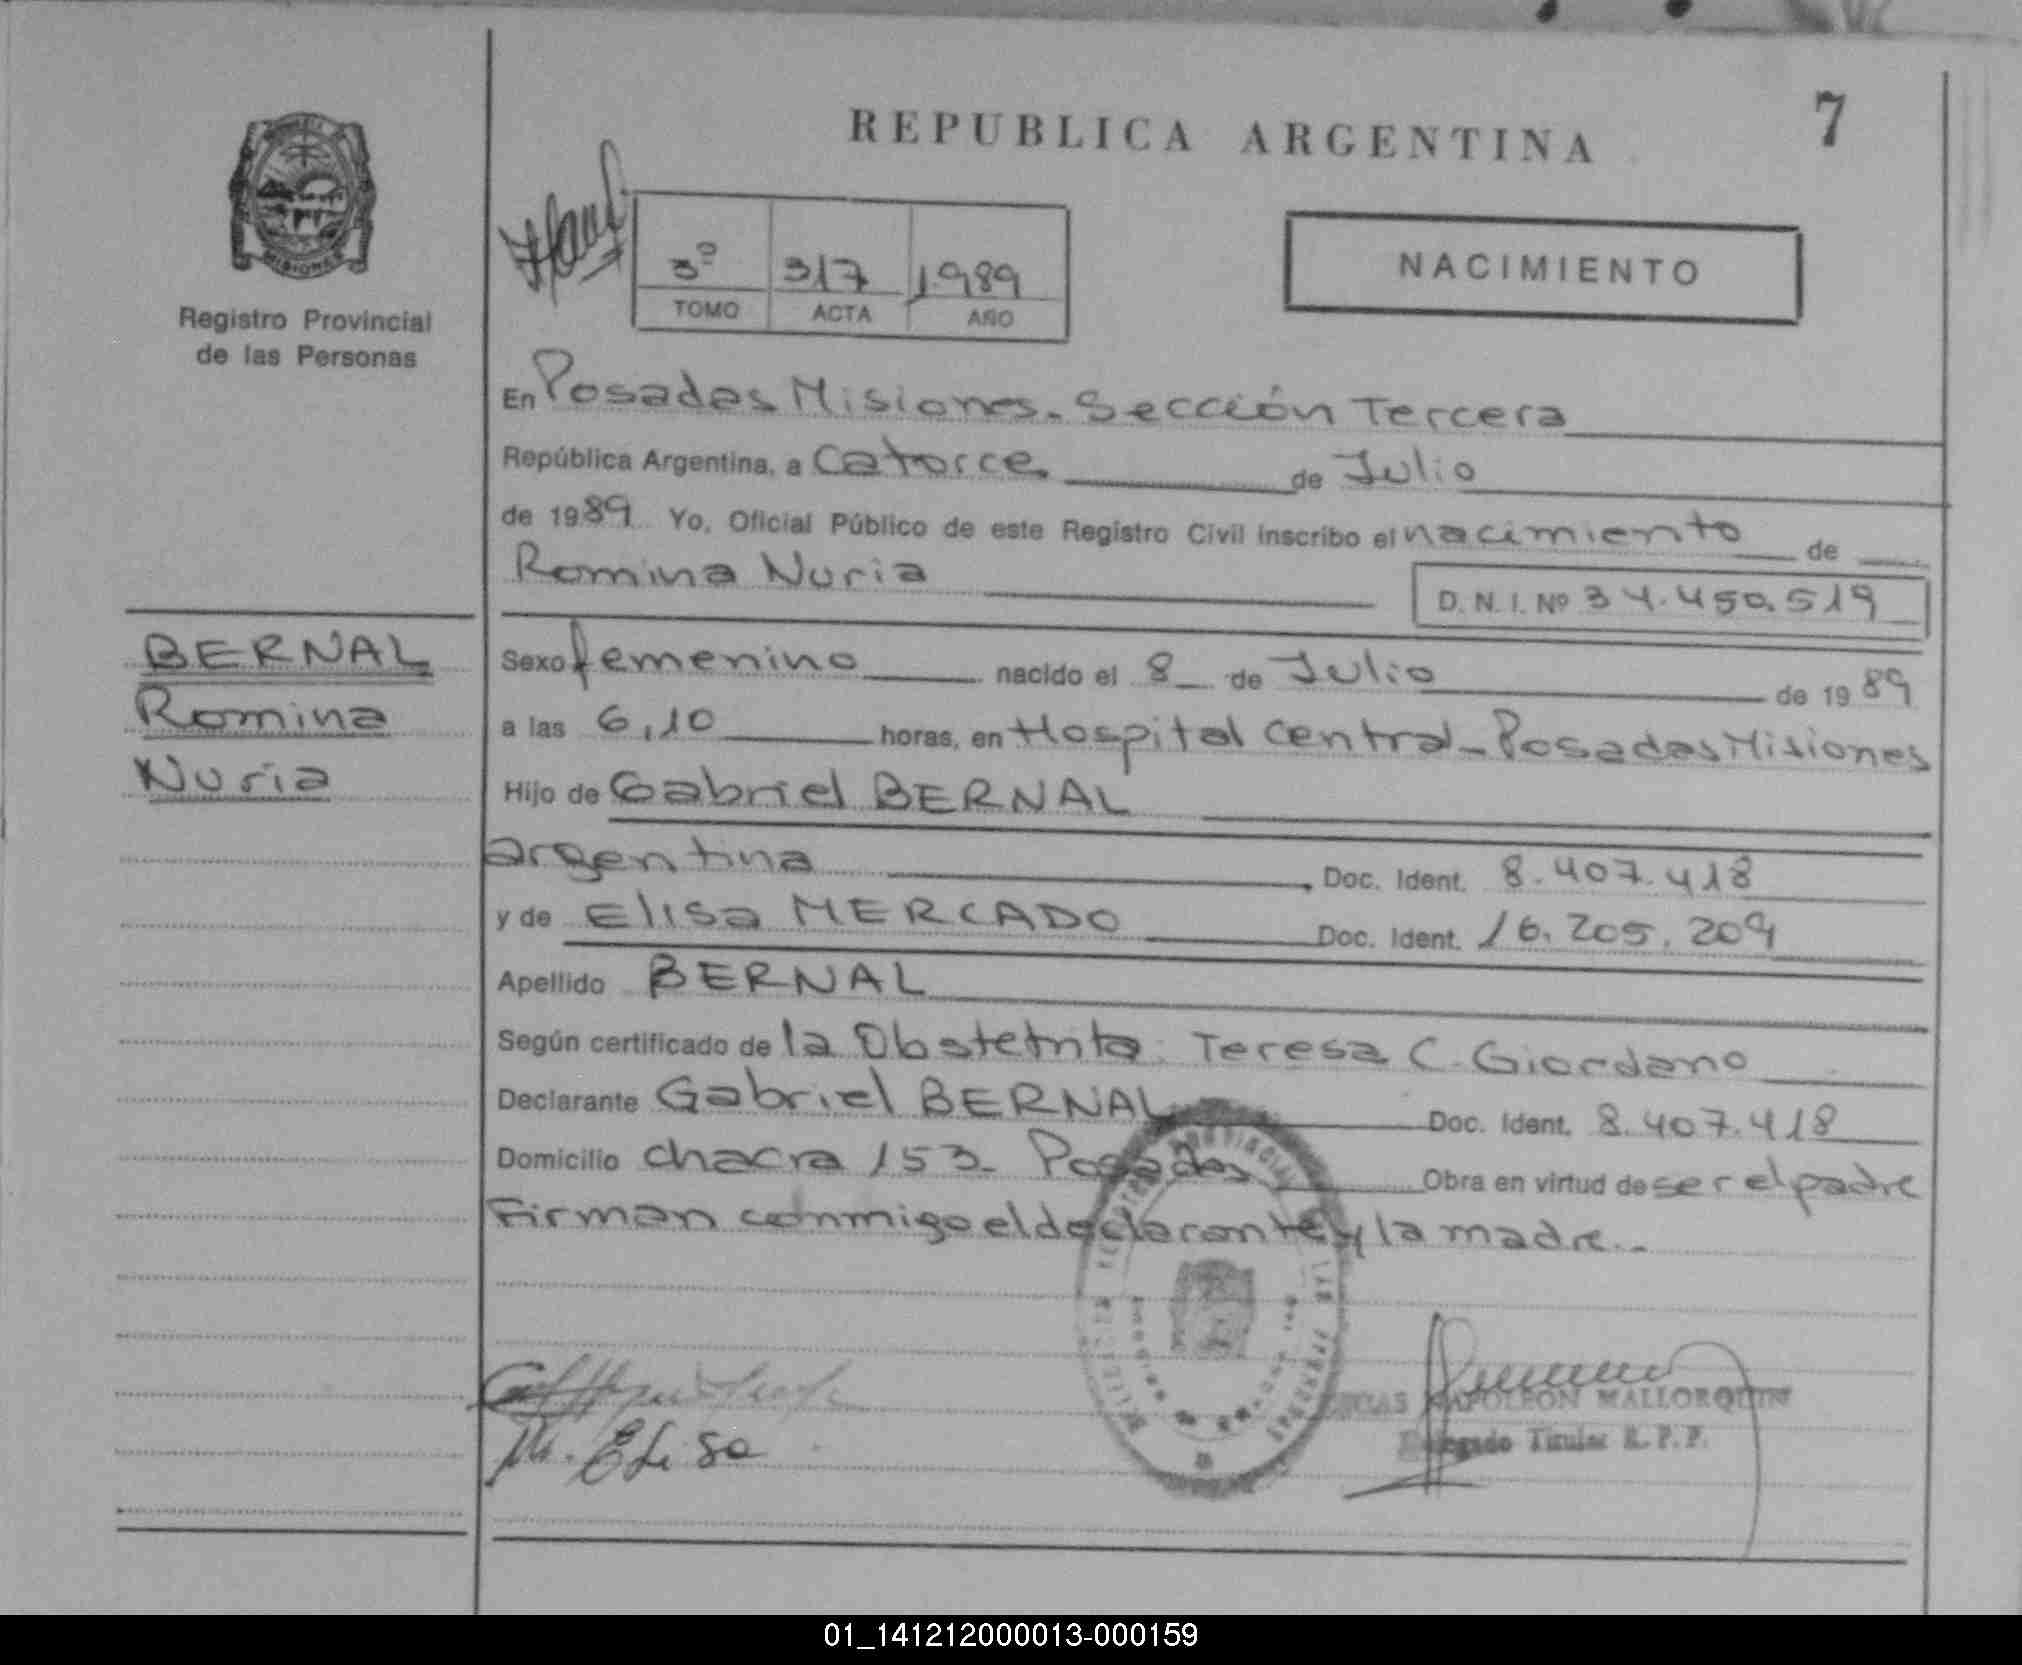 REPUBLICA ARGENTINA
7
MISIONES
Registro Provincial
de las Personas
3º 317 1989
TOMO ACTA AÑO
NACIMIENTO
En Posadas Misiones. Sección Tercera
República Argentina, a Catorce de Julio
de 1989 Yo, Oficial Público de este Registro Civil inscribo el nacimiento de
Romina Nuria
D. N. I. Nº 34.450.519
BERNAL
Romina
Nuria
Sexo femenino nacido el 8 de Julio de 1989
a las 6,10 horas, en Hospital Central - Posadas Misiones
Hijo de Gabriel BERNAL
argentina Doc. Ident. 8.407.418
y de Elisa MERCADO Doc. Ident. 16.205.209
Apellido BERNAL
Según certificado de la Obstetrita Teresa C. Giordano
Declarante Gabriel BERNAL Doc. Ident. 8.407.418
Domicilio chacra 153 - Posadas Obra en virtud de ser el padre
Firman conmigo el declarante y la madre.-
M. Elisa
NAPOLEON MALLORQUIN
Delegado Titular R. P. P.
01_141212000013-000159